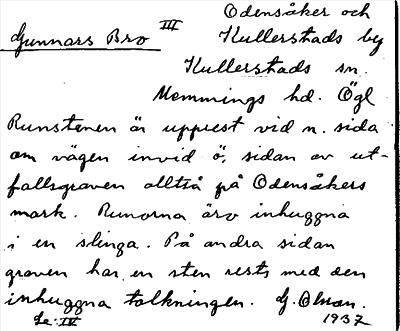 Odensåker och
Gunnars Bro III Kullerstads by
Kullerstads sn.
Memmings hd. Ögl
Runstenen är upprest vid n. sida
om vägen invid ö, sidan av ut-
fallsgraven alltså på Odensåkers
mark. Runorna äro inhuggna
i en slinga. På andra sidan
graven har en sten rests med den
inhuggna tolkningen. G. Olson.
Se: IV 1937